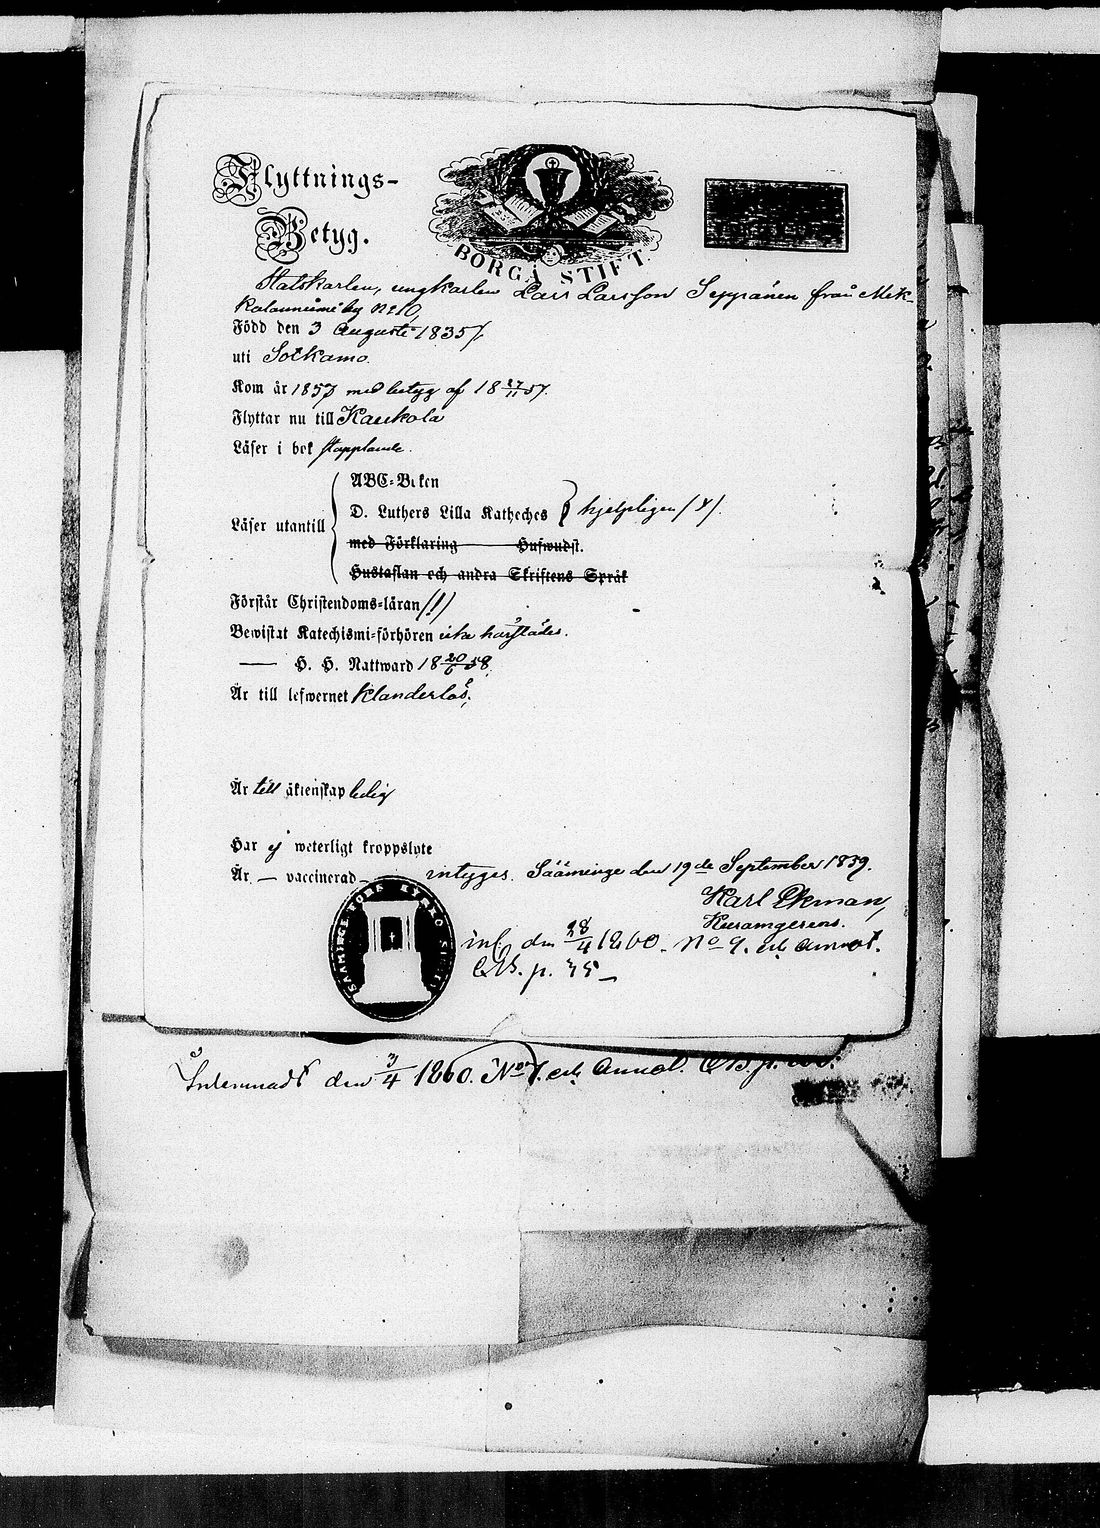 Flyttnings-
Betyg.
BORGÅ STIFT.
Statskarlen, ungkarlen Lars Larsson Seppänen från Mek-
kalanniemi by No 10,
Född den 3 Augusti 1835/.
uti Sotkamo.
Kom år 1857 med betyg af 18 27/11 57.
Flyttar nu till Kaukola
Läser i bok stapplande.
ABC-Boken
Läser utantill D. Luthers Lilla Katheches hjelpligen /x/.
med Förklaring Hufwudst.
Hustaflan och andra Skriftens Språk
Förstår Christendoms-läran /!/
Bewistat Katechismi-förhören icke härstädes.
— H. H. Nattward 18 20/6 58.
Är till lefwernet Klanderlös,
Är till äktenskap ledig
Har ej weterligt kroppslyte
Är — vaccinerad — intygas. Sääminge den 19de September 1859.
Karl Ekman,
SÄÄMINGE SOKNS KYRKO SIGILL
inl. den 28/4 1860. No 9. ech Annot.
CB. p. 35 —
Inlemnadt den 3/4 1860. No 7. ech Annot. CB. p.